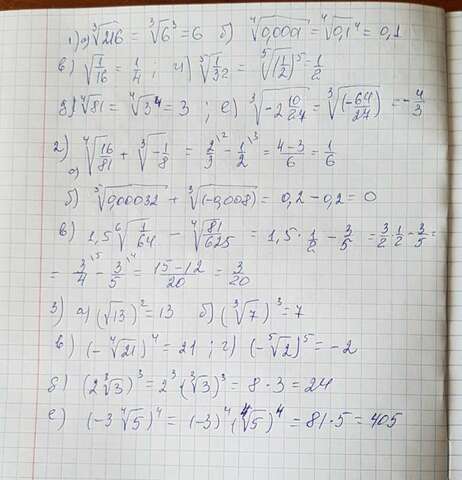 1) а) ∛216 = ∛6³ = 6 б) ∜0,0001 = ∜0,1⁴ = 0,1
в) √1/16 = 1/4, г) ⁵√1/32 = ⁵√(1/2)⁵ = 1/2
д) ∜81 = ∜3⁴ = 3; е) ∛-2 10/27 = ∛(-64/27) = -4/3
2) а) ∜16/81 + ∛-1/8 = 2/3\² - 1/2\³ = 4-3/6 = 1/6
б) ⁵√0,00032 + ∛(-0,008) = 0,2 - 0,2 = 0
в) 1,5 ⁶√1/64 - ∜81/625 = 1,5 · 1/2 - 3/5 = 3/2 · 1/2 - 3/5 =
= 3/4\⁵ - 3/5\⁴ = 15-12/20 = 3/20
3) а) (√13)² = 13 б) (∛7)³ = 7
в) (-∜21)⁴ = 21; г) (-⁵√2)⁵ = -2
д) (2∛3)³ = 2³ · (∛3)³ = 8 · 3 = 24
е) (-3∜5)⁴ = (-3)⁴ (∜5)⁴ = 81 · 5 = 405